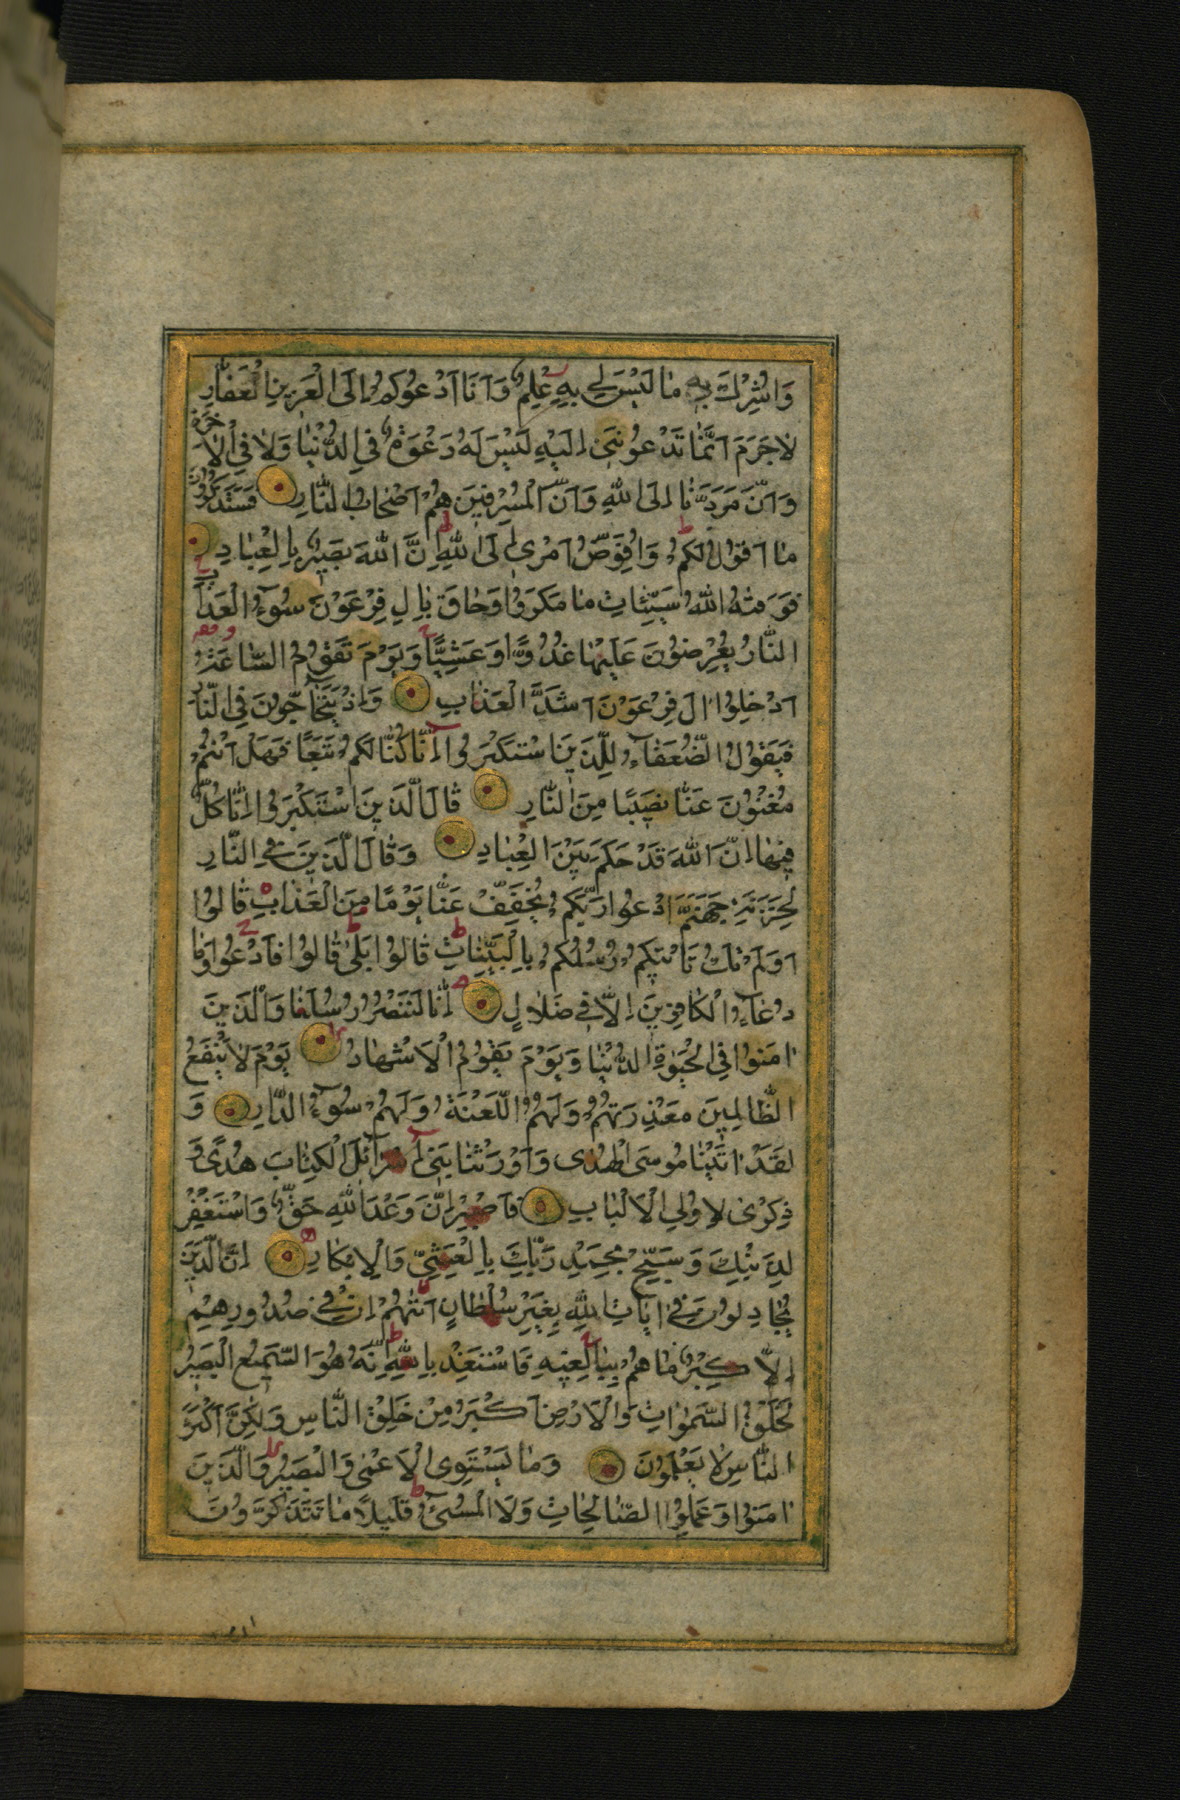 وَاُشْرِكَ بِهِ مٰا لَيْسَ لِي بِهِ عِلْمٌ وَاَنَا اَدْعُوكُمْ اِلَى الْعَزِيزِ الْغَفّٰارِ
لٰا جَرَمَ اَنَّمٰا تَدْعُونَنِي اِلَيْهِ لَيْسَ لَهُ دَعْوَةٌ فِي الدُّنْيٰا وَلٰا فِي الْاٰخِرَةِ
وَاَنَّ مَرَدَّنٰا اِلَى اللّٰهِ وَاَنَّ الْمُسْرِفِينَ هُمْ اَصْحٰابُ النّٰارِ فَسَتَذْكُرُونَ
مٰا اَقُولُ لَكُمْ وَاُفَوِّضُ اَمْرِي اِلَى اللّٰهِ اِنَّ اللّٰهَ بَصِيرٌ بِالْعِبٰادِ
فَوَقٰىهُ اللّٰهُ سَيِّئٰاتِ مٰا مَكَرُوا وَحٰاقَ بِاٰلِ فِرْعَوْنَ سُوۤءُ الْعَذٰابِ
النّٰارُ يُعْرَضُونَ عَلَيْهٰا غُدُوًّا وَعَشِيًّا وَيَوْمَ تَقُومُ السّٰاعَةُ
اَدْخِلُوا اٰلَ فِرْعَوْنَ اَشَدَّ الْعَذٰابِ وَاِذْ يَتَحٰاۤجُّونَ فِي النّٰارِ
فَيَقُولُ الضُّعَفٰاۤءُ لِلَّذِينَ اسْتَكْبَرُوا اِنّٰا كُنّٰا لَكُمْ تَبَعًا فَهَلْ اَنْتُمْ
مُغْنُونَ عَنّٰا نَصِيبًا مِنَ النّٰارِ قٰالَ الَّذِينَ اسْتَكْبَرُوا اِنّٰا كُلٌّ
فِيهٰا اِنَّ اللّٰهَ قَدْ حَكَمَ بَيْنَ الْعِبٰادِ وَقٰالَ الَّذِينَ فِي النّٰارِ
لِخَزَنَةِ جَهَنَّمَ ادْعُوا رَبَّكُمْ يُخَفِّفْ عَنّٰا يَوْمًا مِنَ الْعَذٰابِ قٰالُوا
اَوَلَمْ تَكُ تَاْتِيكُمْ رُسُلُكُمْ بِالْبَيِّنٰاتِ قٰالُوا بَلٰى قٰالُوا فَادْعُوا وَمٰا
دُعٰاۤءُ الْكٰافِرِينَ اِلّٰا فِي ضَلٰالٍ اِنّٰا لَنَنْصُرُ رُسُلَنٰا وَالَّذِينَ
اٰمَنُوا فِي الْحَيٰوةِ الدُّنْيٰا وَيَوْمَ يَقُومُ الْاَشْهٰادُ يَوْمَ لٰا يَنْفَعُ
الظّٰالِمِينَ مَعْذِرَتُهُمْ وَلَهُمُ اللَّعْنَةُ وَلَهُمْ سُوۤءُ الدّٰارِ وَ
لَقَدْ اٰتَيْنٰا مُوسَى الْهُدٰى وَاَوْرَثْنٰا بَنِي اِسْرٰاۤئِلَ الْكِتٰابَ هُدًى وَ
ذِكْرٰى لِاُولِي الْاَلْبٰابِ فَاصْبِرْ اِنَّ وَعْدَ اللّٰهِ حَقٌّ وَاسْتَغْفِرْ
لِذَنْبِكَ وَسَبِّحْ بِحَمْدِ رَبِّكَ بِالْعَشِيِّ وَالْاِبْكٰارِ اِنَّ الَّذِينَ
يُجٰادِلُونَ فِي اٰيٰاتِ اللّٰهِ بِغَيْرِ سُلْطٰانٍ اَتٰىهُمْ اِنْ فِي صُدُورِهِمْ
اِلّٰا كِبْرٌ مٰا هُمْ بِبٰالِغِيهِ فَاسْتَعِذْ بِاللّٰهِ اِنَّهُ هُوَ السَّمِيعُ الْبَصِيرُ
لَخَلْقُ السَّمٰوٰاتِ وَالْاَرْضِ اَكْبَرُ مِنْ خَلْقِ النّٰاسِ وَلٰكِنَّ اَكْثَرَ
النّٰاسِ لٰا يَعْلَمُونَ وَمٰا يَسْتَوِي الْاَعْمٰى وَالْبَصِيرُ وَالَّذِينَ
اٰمَنُوا وَعَمِلُوا الصّٰالِحٰاتِ وَلَا الْمُسِيۤءُ قَلِيلًا مٰا تَتَذَكَّرُونَ